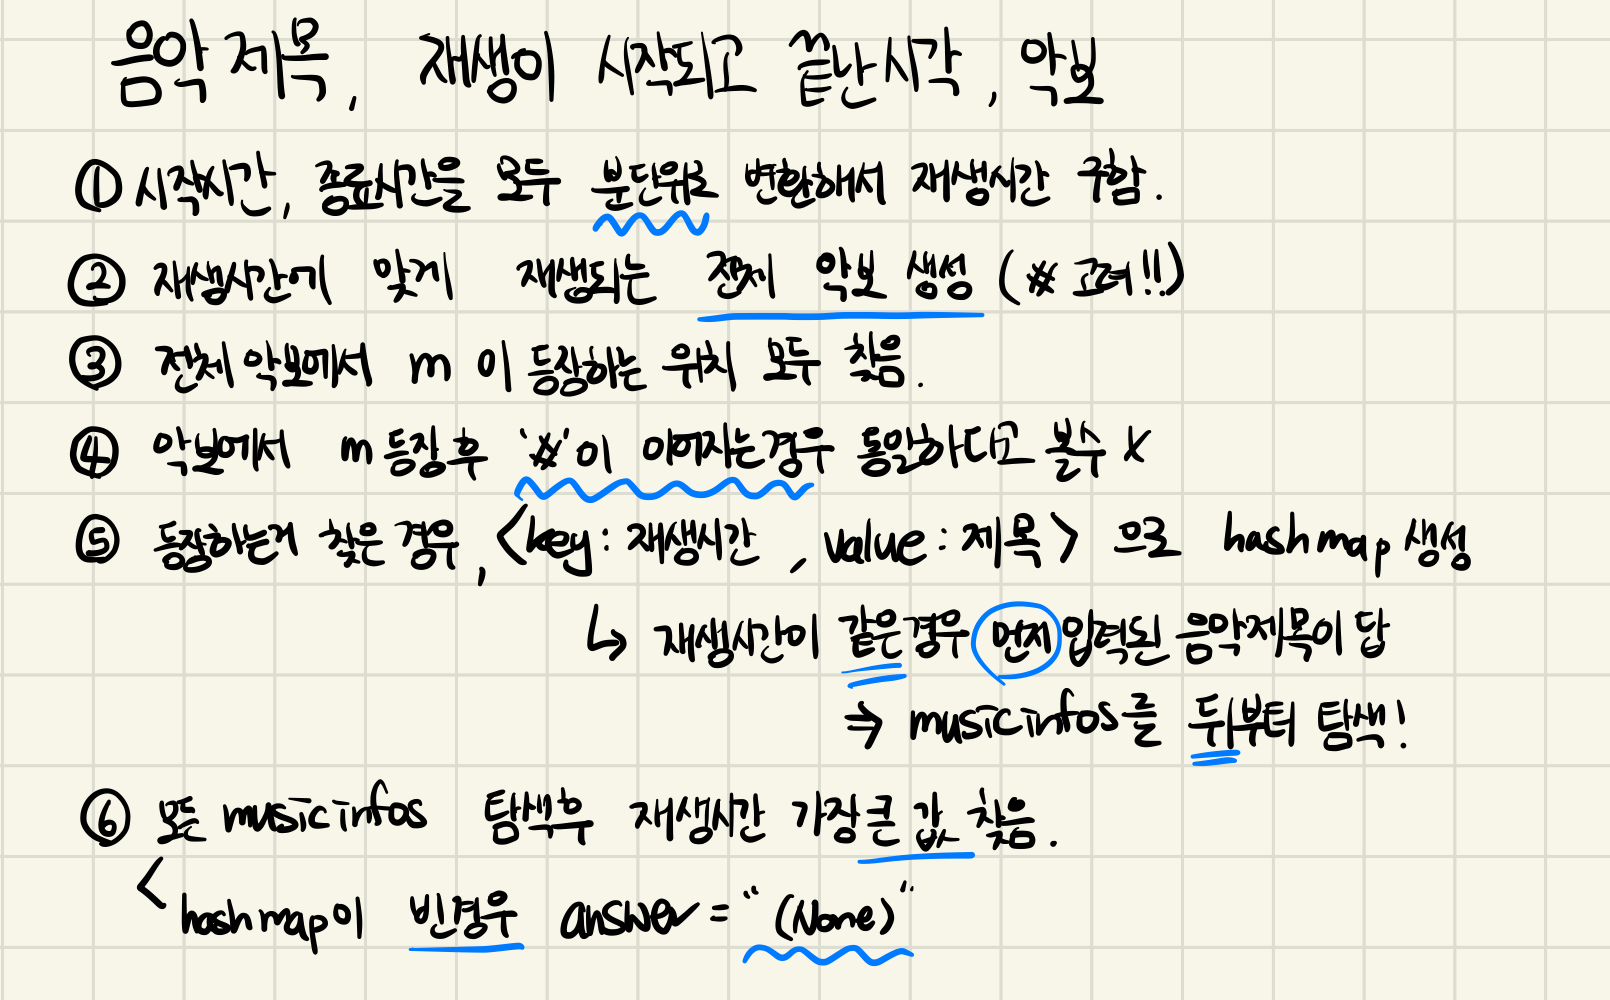 음악 제목, 재생이 시작되고 끝난시각, 악보
① 시작시간, 종료시간을 모두 분단위로 변환해서 재생시간 구함.
② 재생시간에 맞게 재생되는 전체 악보 생성 (# 고려!!)
③ 전체 악보에서 m 이 등장하는 위치 모두 찾음.
④ 악보에서 m 등장 후 '#'이 이어지는경우 동일하다고 볼수 X
⑤ 등장하는거 찾은 경우, <key : 재생시간, value : 제목> 으로 hashmap 생성
↳ 재생시간이 같은경우 먼저 입력된 음악제목이 답
⇒ musicinfos를 뒤부터 탐색!
⑥ 모든 musicinfos 탐색후 재생시간 가장큰 값 찾음.
< hashmap이 빈경우 answer = "(None)"